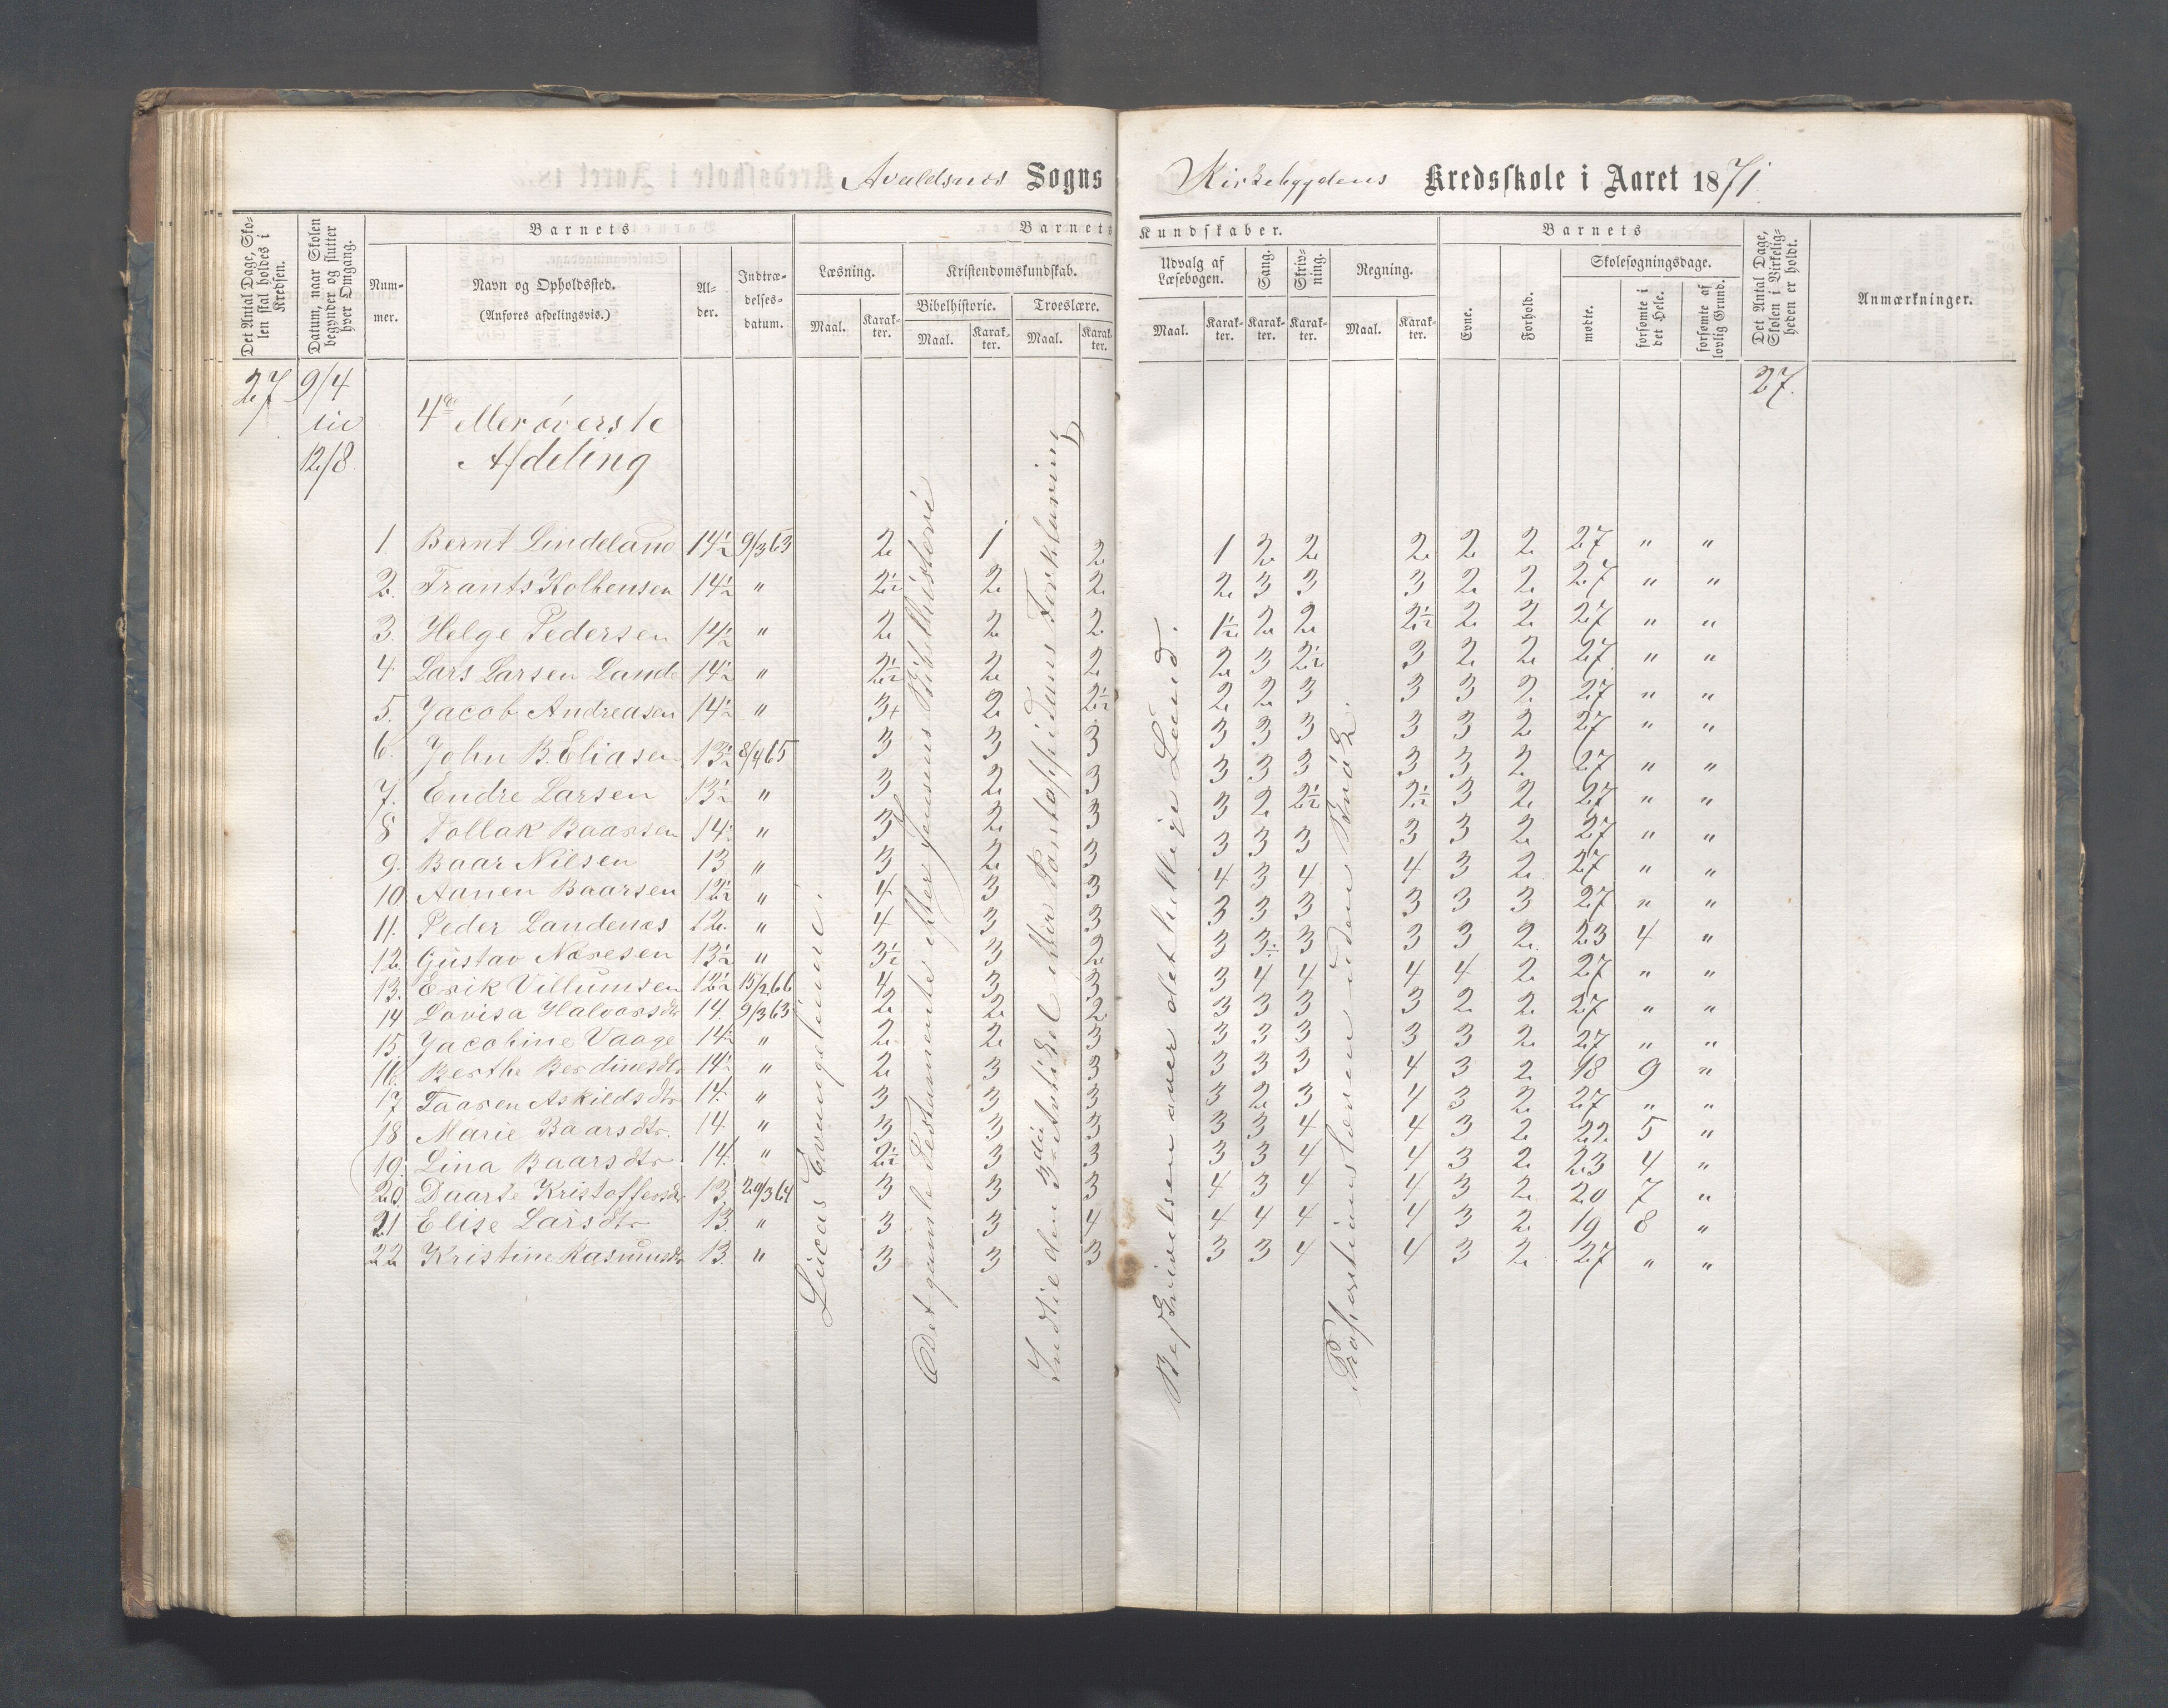 Avaldsnes Sogns Kirkebygdens Kredsskole i Aaret 1871.
Det Antal Dage, Skolen skal holdes i Kredsen.
Datum, naar Skolen begynder og slutter hver Omgang.
Barnets
Nummer.
Navn og Opholdssted.
(Anføres afdelingsvis.)
Alder.
Indtrædelsesdatum.
Barnets Kundskaber.
Læsning.
Maal.
Karakter.
Kristendomskundskab.
Bibelhistorie.
Maal.
Karakter.
Troeslære.
Maal.
Karakter.
Udvalg af Læsebogen.
Maal.
Karakter.
Sang.
Karakter.
Skrivning.
Karakter.
Regning.
Maal.
Karakter.
Barnets
Evne.
Forhold.
Skolesøgningsdage.
mødte.
forsømte i det Hele.
forsømte af lovlig Grund.
Det Antal Dage, Skolen i Virkeligheden er holdt.
Anmærkninger.
27 9/4 27.
12/8.
4de øverste
Afdeling
Lucas Evangelium.
Det gamle Testamente efter Jensens Bibelhistorie
Indtil den 3die Artikel efter Pontoppidans Forklaring
Beskrivelsen over det hellige Land.
Proportionslæren uden Brök.
1 Bernt Lindeland 14½ 9/3 63 2 1 2 1 2 2 2 2 2 27 " "
2. Frants Kolbensen 14½ " 2½ 2 2 2 3 3 3 2 2 27 " "
3. Helge Pedersen 14½ " 2 2 2 1½ 2 2 2½ 2 2 27 " "
4 Lars Larsen Lande 14½ " 2½ 2 2 2 3 2½ 3 2 2 27 " "
5. Jacob Andreasen 14½ " 3+ 2 2½ 2 2 3 3 3 2 27 " "
6. John B. Eliasen 13½ 8/4 65 3 3 3 3 3 3 3 3 2 27 " "
7. Endre Larsen 13½ " 3 2 3 3 3 3 3 3 2 27 " "
8 Tollak Baarsen 14½ " 3 2 3 3 2 2½ 2½ 3 2 27 " "
9. Baar Nilsen 13 " 3 2 3 3 3 3 3 3 2 27 " "
10. Aanen Baarsen 12½ " 4 3 3 4 3 4 4 3 2 27 " "
11. Peder Landenes 12. " 4 3 3 3 3 3 3 3 3 27 " "
12. Gustav Naresen 13½ " 3½ 3 2 3 3 3 3 3 2 23 4 "
13. Erik Villumsen 12½ 15/2 66 4 3 3 3 4 4 4 4 2 27 " "
14 Lovisa Halvorsdtr 14. 9/3 63 2 2 2 3 3 3 3 2 2 27 " "
15. Jacobine Vaage 14½ " 2 2 3 3 3 3 3 3 2 27 " "
16. Berthe Berdinesdtr 14½ " 2 3 3 3 3 3 4 3 2 18 9 "
17 Taaren Askildsdtr 14. " 3 3 3 3 2 3 4 3 2 27 " "
18 Marie Baarsdtr. 14. " 3 3 3 3 3 4 4 3 2 22 5 "
19. Lina Baarsdtr 14. " 2½ 3 3 3 3 4 4 3 2 23 4 "
20. Daarte Kristoffersdtr 13. 29/3 64 3 3 3 4 3 4 4 3 2 20 7 "
21 Elise Larsdtr 13. " 3 3 4 4 4 4 4 3 2 19 8 "
22 Kristine Rasmusdtr 13. " 3 3 3 3 3 4 4 3 2 27 " "